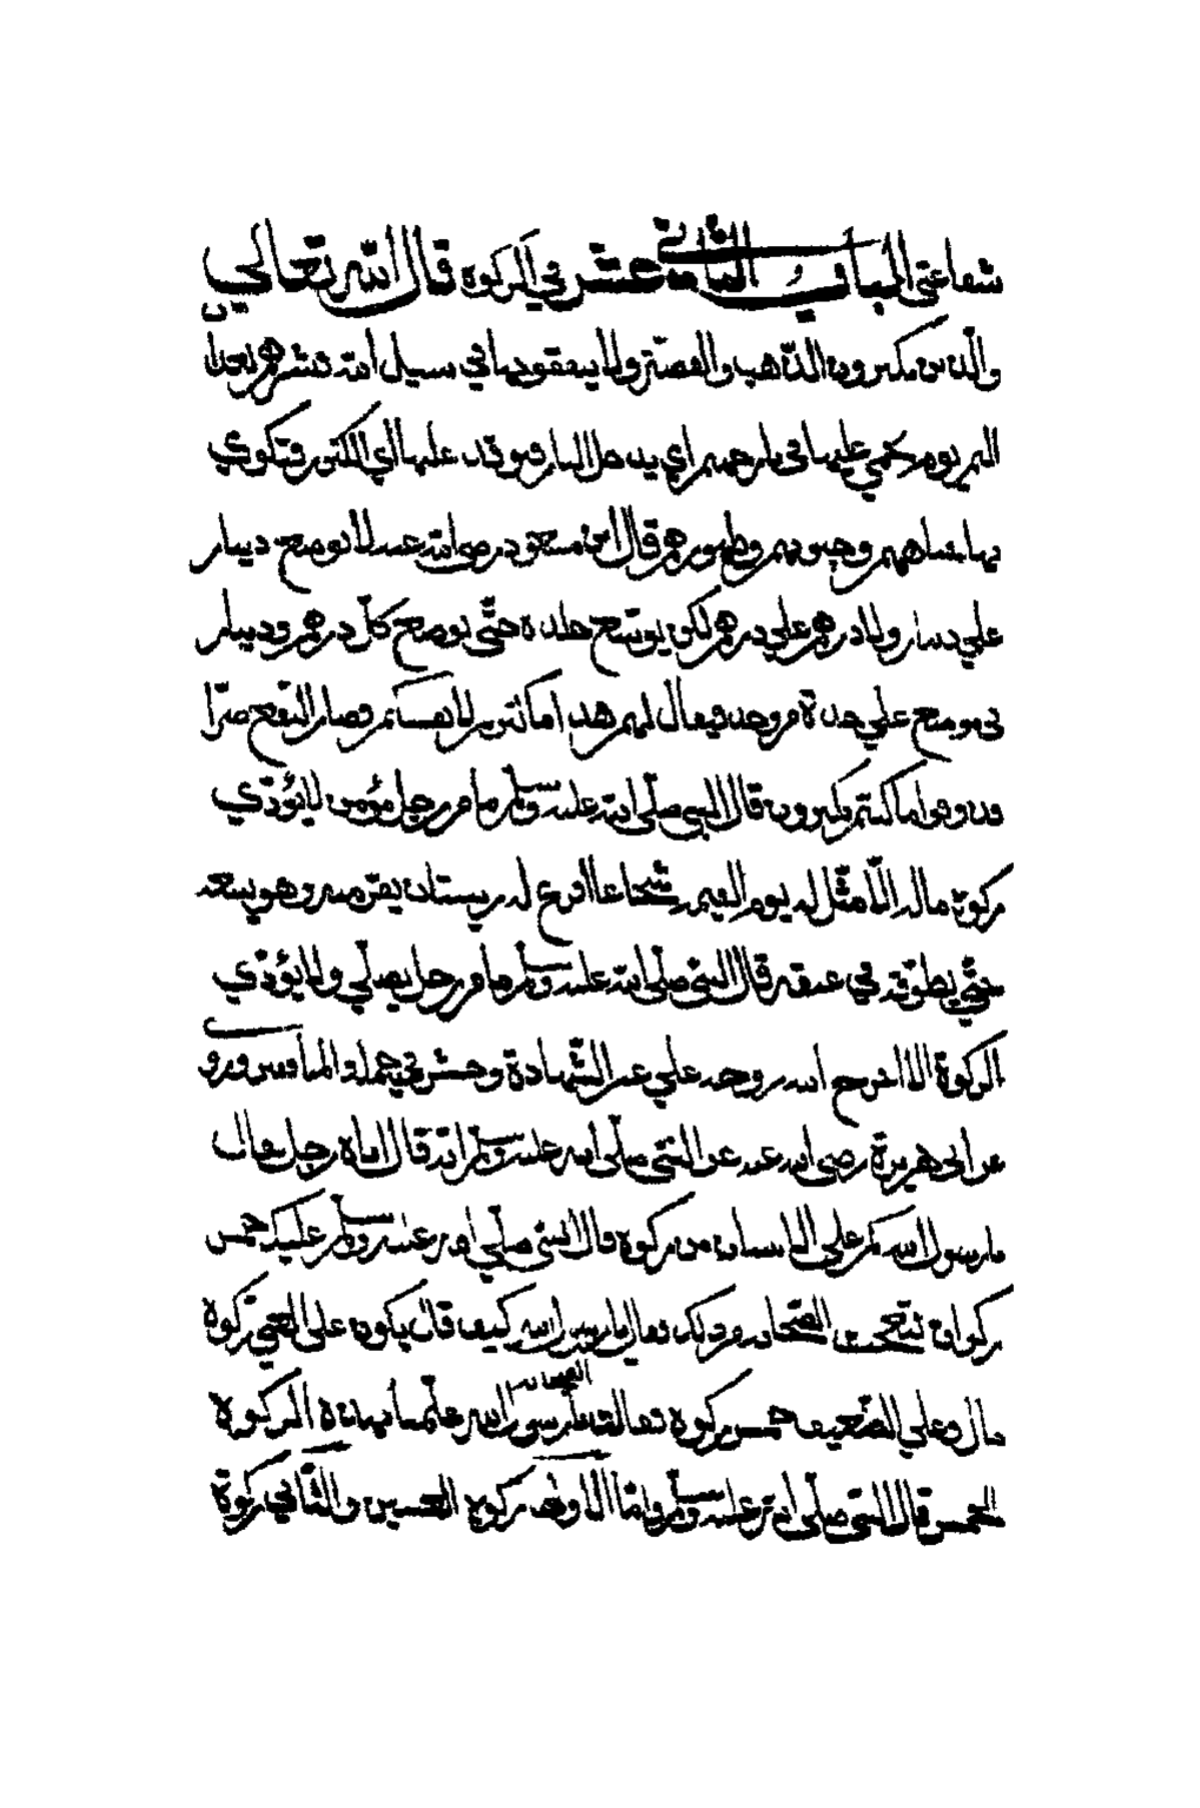 شفاعتي الباب الثاني عشر في الزكوة قال الله تعالي
والذين يكنزون الذهب والفضة ولا ينفقونها في سبيل الله فبشرهم بعذاب
اليم يوم يحمي عليها في نار جهنم اي يدخل النار فيوقد عليها اي الكنوز فتكوي
بها جباههم وجنوبهم وظهورهم قال ابن مسعود رضي الله عنه لا يوضع دينار
علي دينار ولا درهم علي درهم لكن يوسع جلده حتي يوضع كل درهم ودينار
في موضع علي حدة فيقال لهم هذا ما كنزتم لانفسكم وصار النفع ضرا
فذوقوا ما كنتم تكنزون قال النبي صلي الله عليه وسلم ما من رجل مؤمن لا يؤدي
زكوة ماله الا مثل له يوم القيمة شجاعا اقرع له زبيبتان يفر منه وهو يتبعه
حتي يطوقه في عنقه قال النبي صلي الله عليه وسلم ما من رجل يصلي ولا يؤدي
الزكوة الا اخرج الله روحه علي غير الشهادة وحشر في جملة المنافقين وروي
عن ابي هريرة رضي الله عنه عن النبي صلي الله عليه وسلم انه قال اتاه رجل فقال
يا رسول الله كم علي الانسان من زكوة قال النبي صلي الله عليه وسلم عليك خمس
زكوات فتعجبت الصحابة من ذلك فقال يا رسول الله كيف قال يكون علي الغني زكوة
مال وعلي الضعيف خمس زكوة فقالت الصحابة يا رسول الله علمنا بهذه الزكوة
الخمس قال النبي صلي الله عليه وسلم اما الاولي زكوة العينين والثاني زكوة